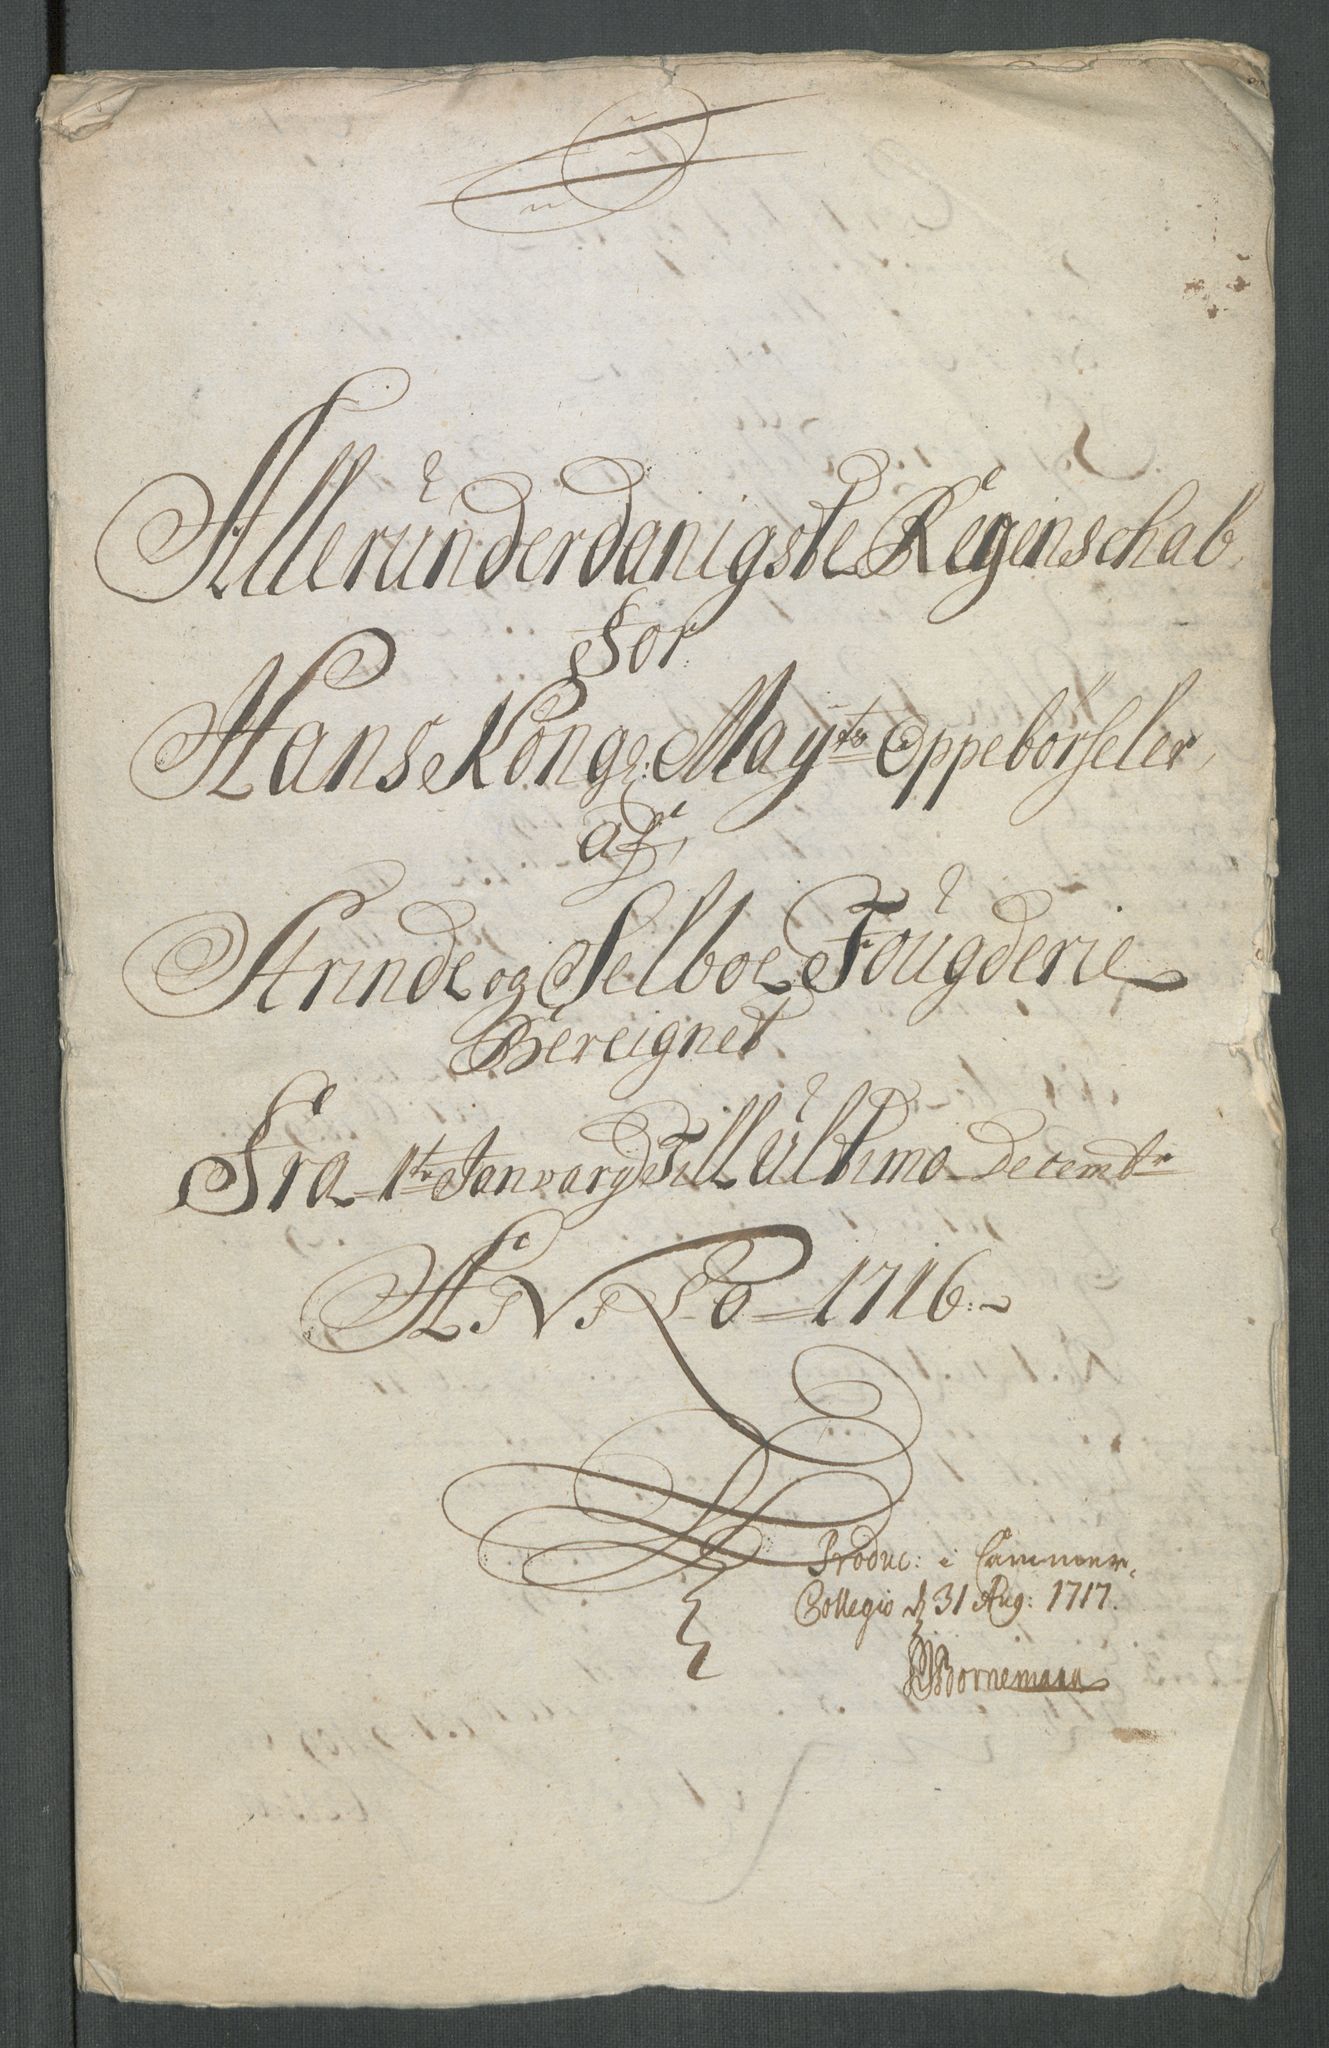 Alleründerdanigste Regenschab
For
Hans Kongl: Mayts Oppebörseler,
af
Strinde og Selboe Foügderie
Bereignet
Fra 1te Janvarij Till Ültimo Decembr
ANNO 1716.
Produc: i Cammer-
Collegio d 31 Aug: 1717.
Bornemann